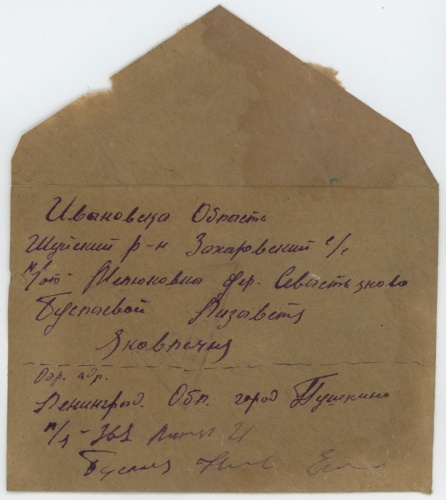 Ивановска Область
Шуйский р-н Захаровский с/с
п/от Мелюковка дер. Севастьяново
Буслаевой Лизавете
Яковлечня
Обр. адр.
Ленинград. Обл. город Пушкино
п/я - 363 Литер 21